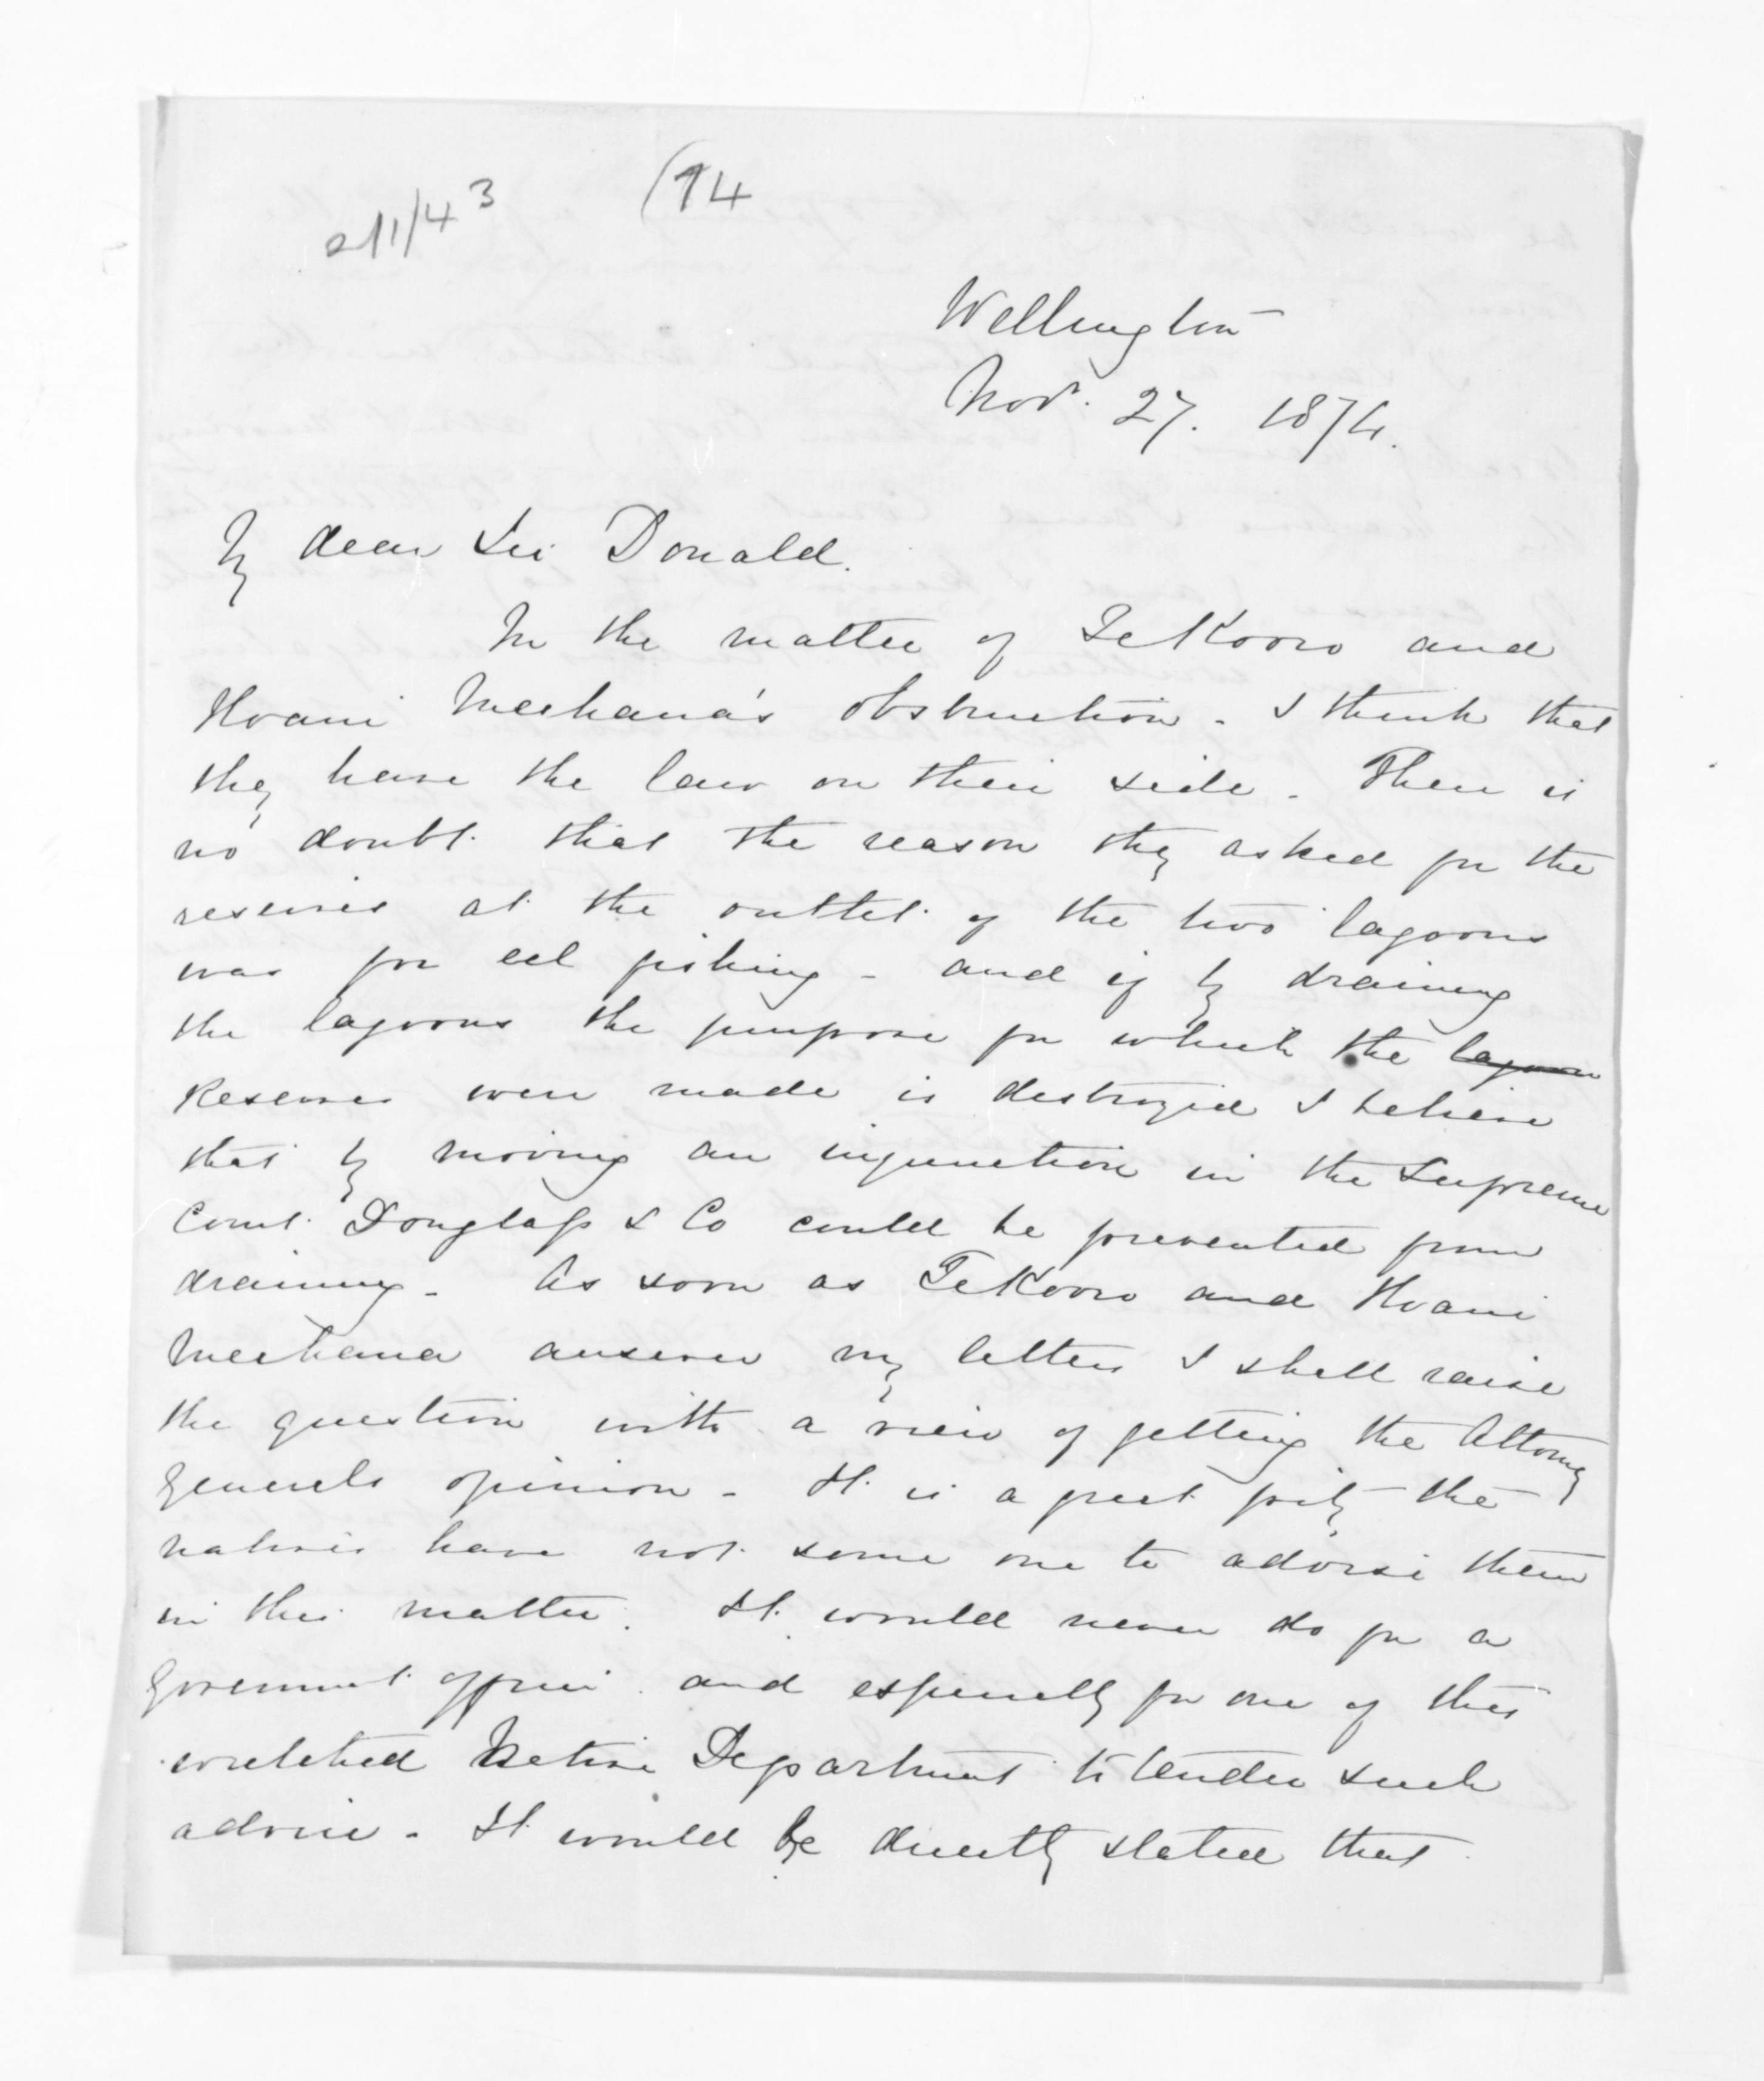 211/43 (14
Wellington
Nov. 27. 1874.
My dear Sir Donald.
In the matter of Te Kooro and
Hoani Meehana's obstruction - I think that
they have the law on their side - There is
no doubt that the reason they asked for the
reserves at the outlet of the two lagoons
was for eel fishing - and if by draining
the lagoons the purpose for which the lagoon
Reserves were made is destroyed I believe
that by moving an injunction in the Supreme
Court Douglass & Co could be prevented from
draining - As soon as Te Kooro and Hoani
Meehana answer my letters I shall raise
the question with a view of getting the Attorney
Generals opinion - It is a great pity the
natives have not some one to advise them
in this matter. It would never do for a
Government officer and especially for one of this
wretched Native Department to tender such
advice - It would be directly stated that